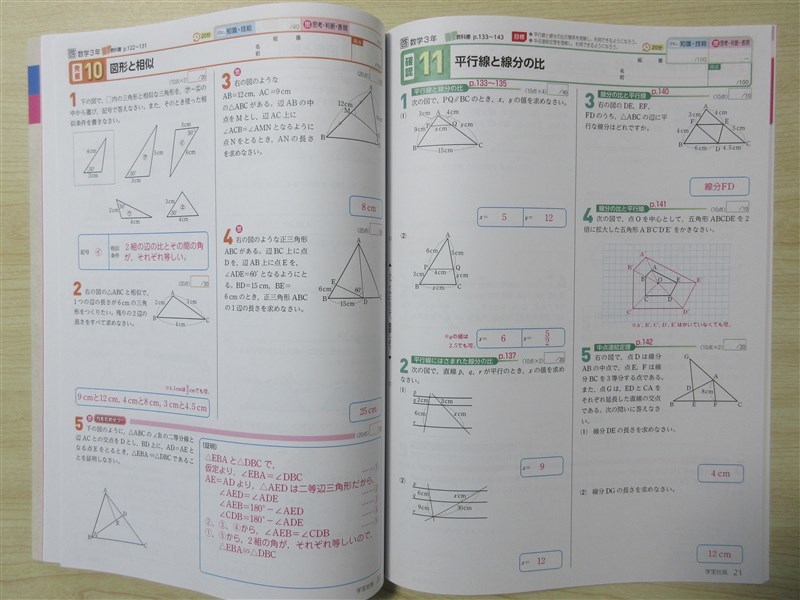 数学3年 教科書 p.122〜131
20分
知識・技能 /60 思考・判断・表現
組 番
名前
10 図形と相似
1 下の図で，□内の三角形と相似な三角形を，㋐〜㋓の
中から選び，記号で答えなさい。また，そのとき使った相
似条件を書きなさい。
記号 ㋑ 相似条件 2組の辺の比とその間の角
が，それぞれ等しい。
2 右の図の△ABCと相似で，
1つの辺の長さが6cmの三角
形をつくりたい。残りの2辺の
長さをすべて求めなさい。
9cmと12cm, 4cmと8cm, 3cmと4.5cm
3 右の図のような
AB=12cm, AC=9cm
の△ABCがある。辺ABの中
点をMとし，辺AC上に
∠ACB=∠AMNとなるように
点Nをとるとき，ANの長さ
を求めなさい。
12cm
8cm
4 右の図のような正三角形
ABCがある。辺BC上に点
Dを，辺AB上に点Eを，
∠ADE=60°となるようにと
る。BD=15cm，BE=
6cmのとき，正三角形ABC
の1辺の長さを求めなさい。
15cm
25cm
5 下の図のように，△ABCの∠Bの二等分線と
辺ACとの交点をDとし，BD上に，AD=AEと
なる点Eをとるとき，△EBA∽△DBCであるこ
とを証明しなさい。
〔証明〕
△EBAと△DBCで，
仮定より，∠EBA=∠DBC
AE=ADより，△AEDは二等辺三角形だから，
∠AED=∠ADE
∠AEB=180°−∠AED
∠CDB=180°−∠ADE
②，③，④から，∠AEB=∠CDB
①，⑤から，2組の角が，それぞれ等しいので，
△EBA∽△DBC
数学3年 教科書 p.133〜143
目標
20分
知識・技能 思考・判断・表現
組 番
名前
/100
確認 11 平行線と線分の比
1 平行線と線分の比 p.133〜135
次の図で，PQ∥BCのとき，x，yの値を求めなさい。
(1)
3cm 4cm
15cm
x= 5 x= 12
(2)
6cm 5cm
4cm
※yの値は
2.5でも可。
x= 6
2 平行線にはさまれた線分の比 p.137
次の図で，直線p，q，rが平行のとき，xの値を求めなさい。
(1)
2cm 3cm
6cm xcm
x= 9
(2)
6cm xcm
9cm
x= 12
3 線分の比と平行線 p.140
右の図のDE，EF，
FDのうち，△ABCの辺に平
行な線分はどれですか。
4cm
6cm D 4.5cm
線分FD
4 p.141
次の図で，点Oを中心として，五角形ABCDEを2
倍に拡大した五角形A'B'C'D'E'をかきなさい。
※A', B', C', D', E'はかいていなくても可。
5 中点連結定理 p.142
右の図で，点Dは線分
ABの中点で，点E，Fは線
分BCを3等分する点である。
また，点Gは，EDとCAを
それぞれ延長した直線の交点
である。次の問いに答えな
さい。
8cm
(1) 線分DEの長さを求めなさい。
4cm
(2) 線分DGの長さを求めなさい。
12cm
学宝社版 21